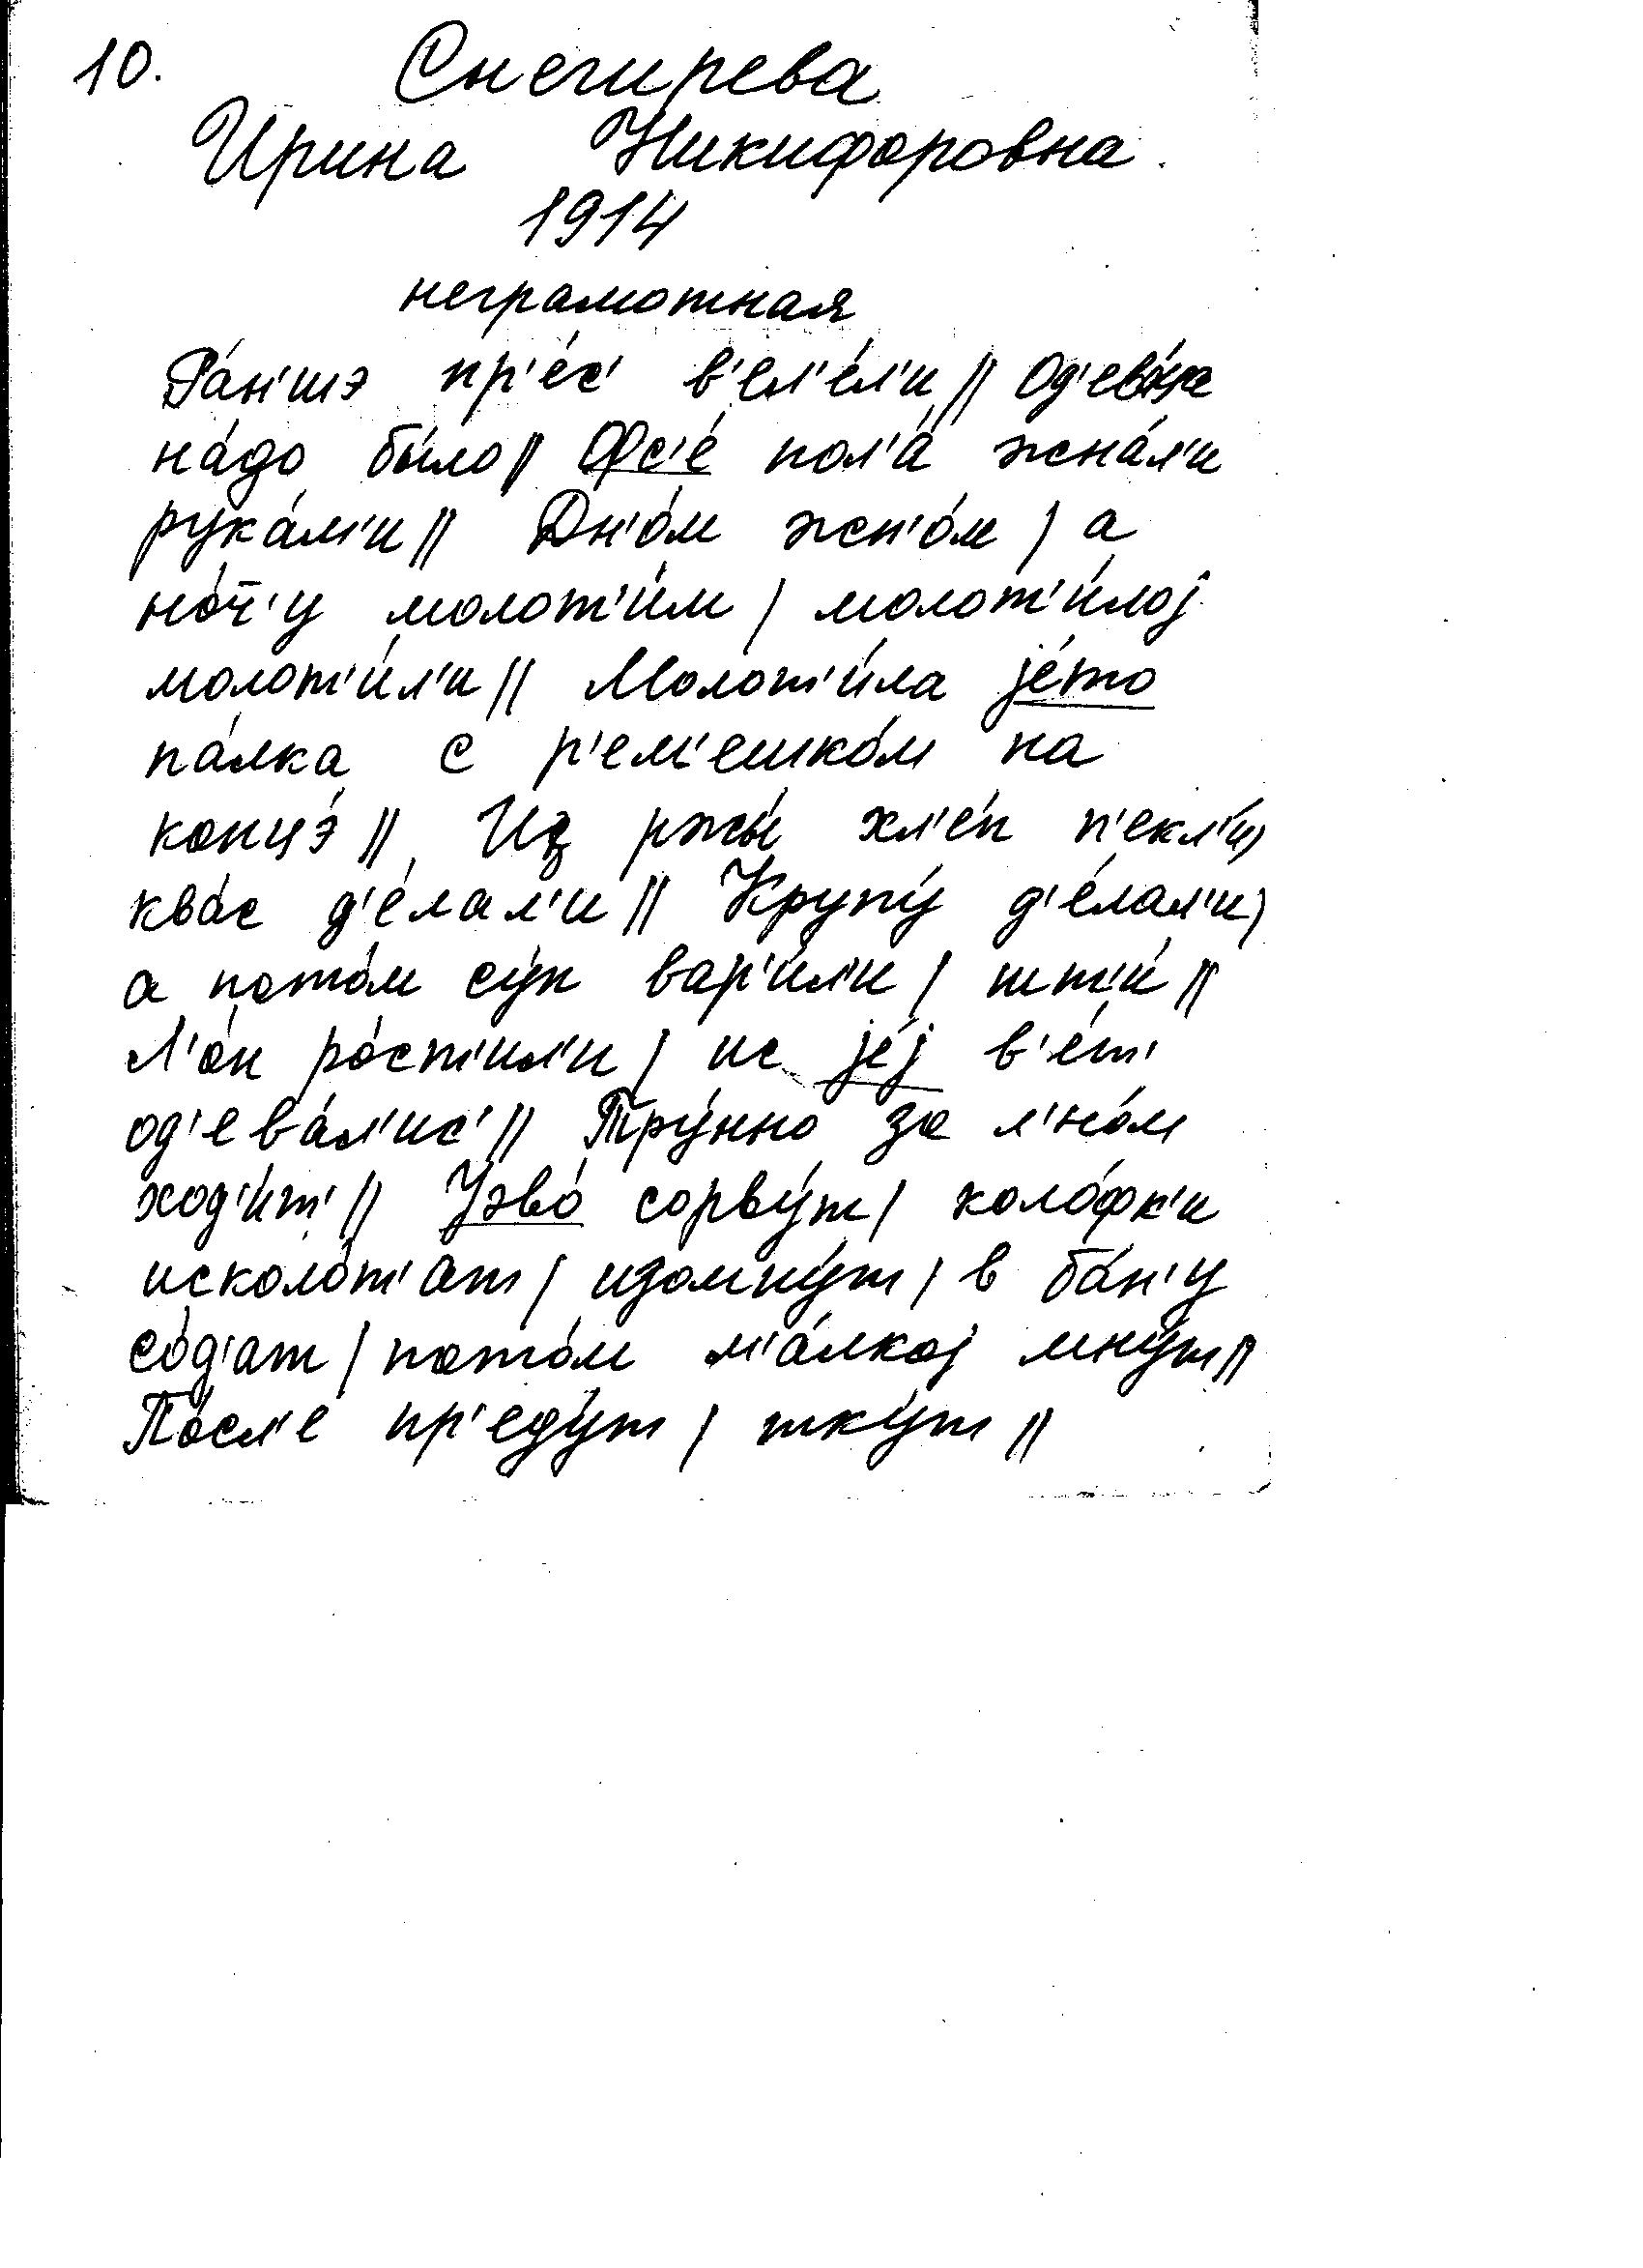 10. Снегирева
Ирина Никифоровна.
1914
неграмотная
Ра́н'шэ пр'е́с' в'ел'е́л'и ||
на́до бы́ло || Фс'е́ пол'а́ жна́л'и
рука́м'и || Дн'о́м жн'о́м | а
но́ч'у молот'и́м | молот'и́лоj
молот'и́л'и || Молот'и́ла jе́то
па́лка с р'ем'ешко́м на
концэ́ || Из ржы́ хл'е́п п'екл'и́ |
ква́с д'е́лал'и || Крупу́ д'е́лал'и |
а пото́м су́п вар'и́л'и | шт'и́ ||
Л'о́н ро́ст'ил'и | ис jе́j в'е́т'
од'ева́л'ис' || Тру́нно за л'но́м
ход'и́т' || Jэво́ сорву́т | коло́фк'и
исколо́т'ат | изомну́т | в ба́н'у
со́д'ат | пото́м м'а́лкоj мну́т ||
По́сл'е пр'еду́т | тку́т ||